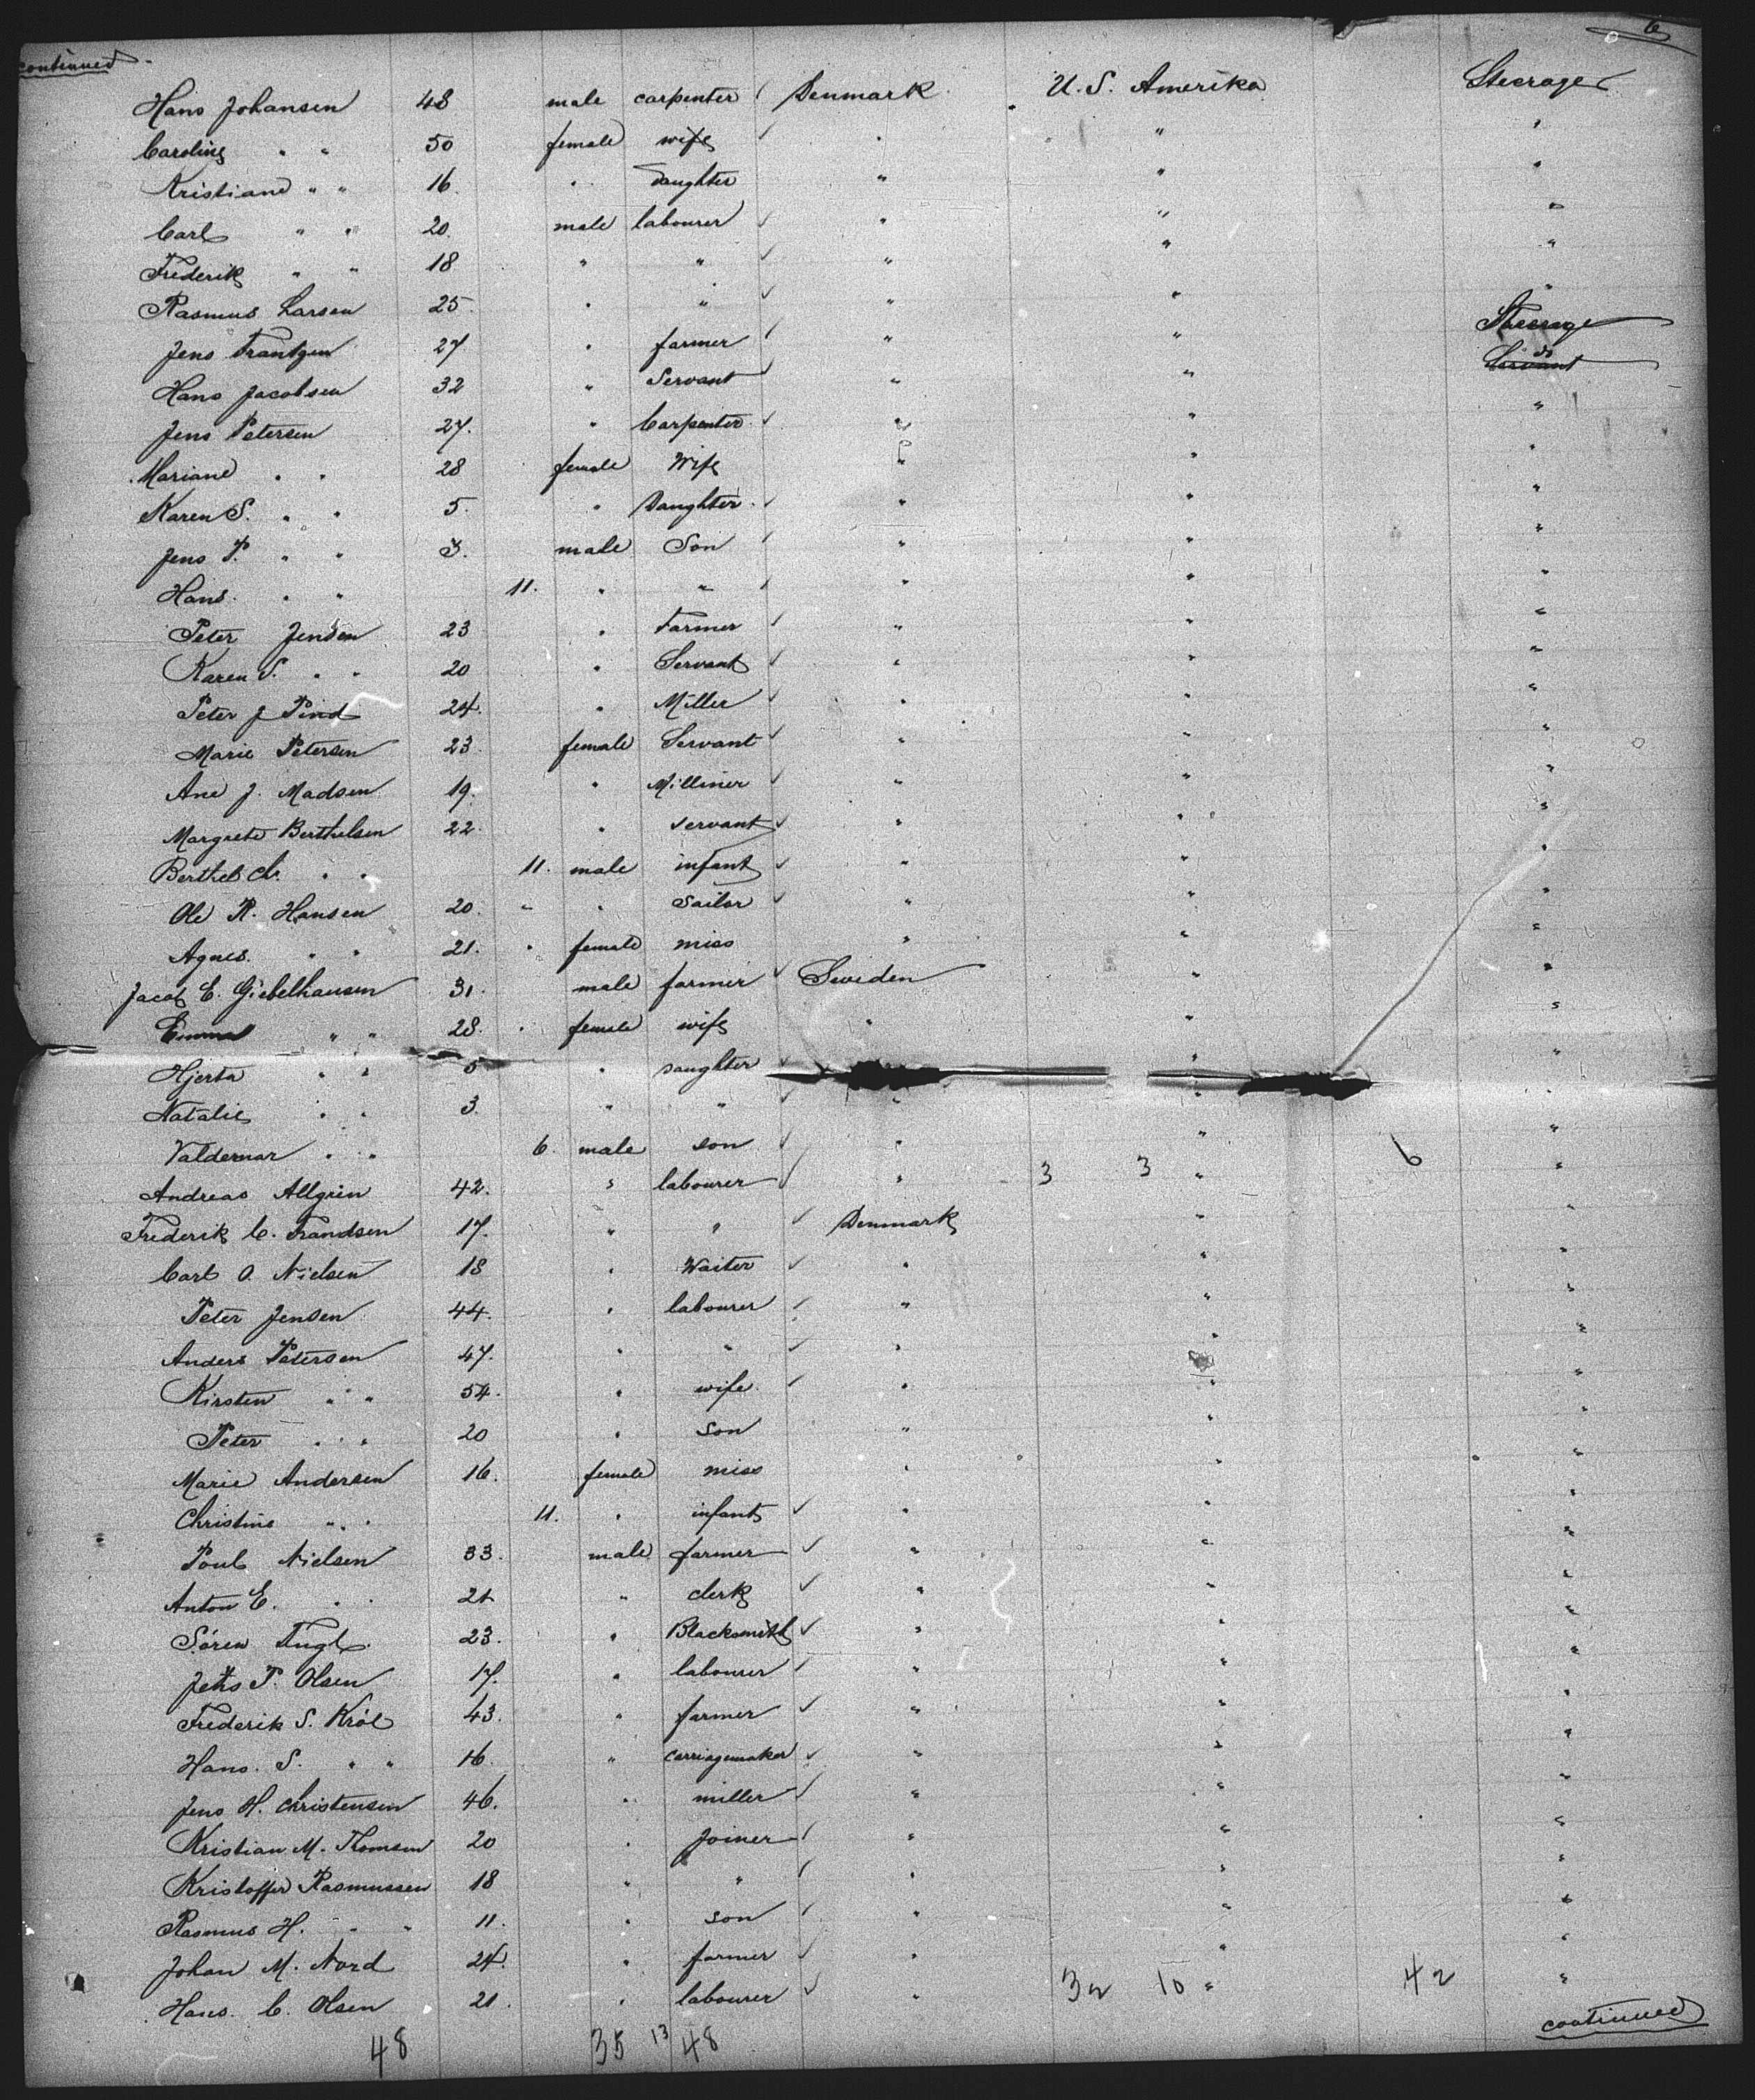 continued 6
Hans Johansen 48 male carpenter Denmark U.S. Amerika Steerage
Caroline " " 50 female wife " " "
Kristiane " " 16. " Daughter " " "
Carl " " 20. male labourer " " "
Frederik " " 18 " " " " "
Rasmus Larsen 25. " " " " "
Jens Frantzen 27 " farmer " " Steerage
Hans Jacobsen 32 " Servant " " Servant do
Jens Petersen 27. " Carpenter " " "
Mariane " " 28 female Wife " " "
Karen S. " " 5. " Daughter " " "
Jens P. " " 3. male Son " " "
Hans. " " 11. " " " " "
Peter Jensen 23 " Farmer " " "
Karen S. " " 20 " Servant " " "
Peter J Pind 24. " Miller " " "
Marie Petersen 23 female Servant " " "
Ane J. Madsen 19. " Milliner " " "
Margrete Berthelsen 22. " servant " " "
Berthel Ch. " " 11. male infant " " "
Ole R. Hansen 20. " " Sailor " " "
Agnes. " " 21. " female miss " " "
Jacob E. Giebelhausen 31. male farmer Sweden " "
Emma " " 28. " female wife " " "
Hjerta " " 5 " daughter " "
Natalie " " 3. " " " " "
Valdemar " " 6. male son " " "
Andreas Allgrin 42. " labourer " 3 3 " 6 "
Frederik C. Frandsen 17. " " Denmark " "
Carl O. Nielsen 18 " Waiter " " "
Peter Jensen 44. " labourer " " "
Anders Petersen 47. " " " " "
Kirsten " " 54. " wife " " "
Peter " " 20 " son " " "
Marie Andersen 16. female miss " " "
Christine " " 11. " infant " " "
Poul Nielsen 33. male farmer " " "
Anton E. " " 21 " clerk " " "
Sören Fugl. 23. " Blacksmith " " "
Jens P. Olsen 17. " labourer " " "
Frederik S. Kröl 43. " farmer " " "
Hans. S. " " 16. " carriagemaker " " "
Jens H. Christensen 46. " miller " " "
Kristian M. Thomsen 20 " Joiner " " "
Kristoffer Rasmussen 18 " " " " "
Rasmus H. " " 11. " son " " "
Johan M. Nord 24. " farmer " " "
Hans. C. Olsen 21. " labourer " 32 10 " 42 "
48 35 13 48 continued